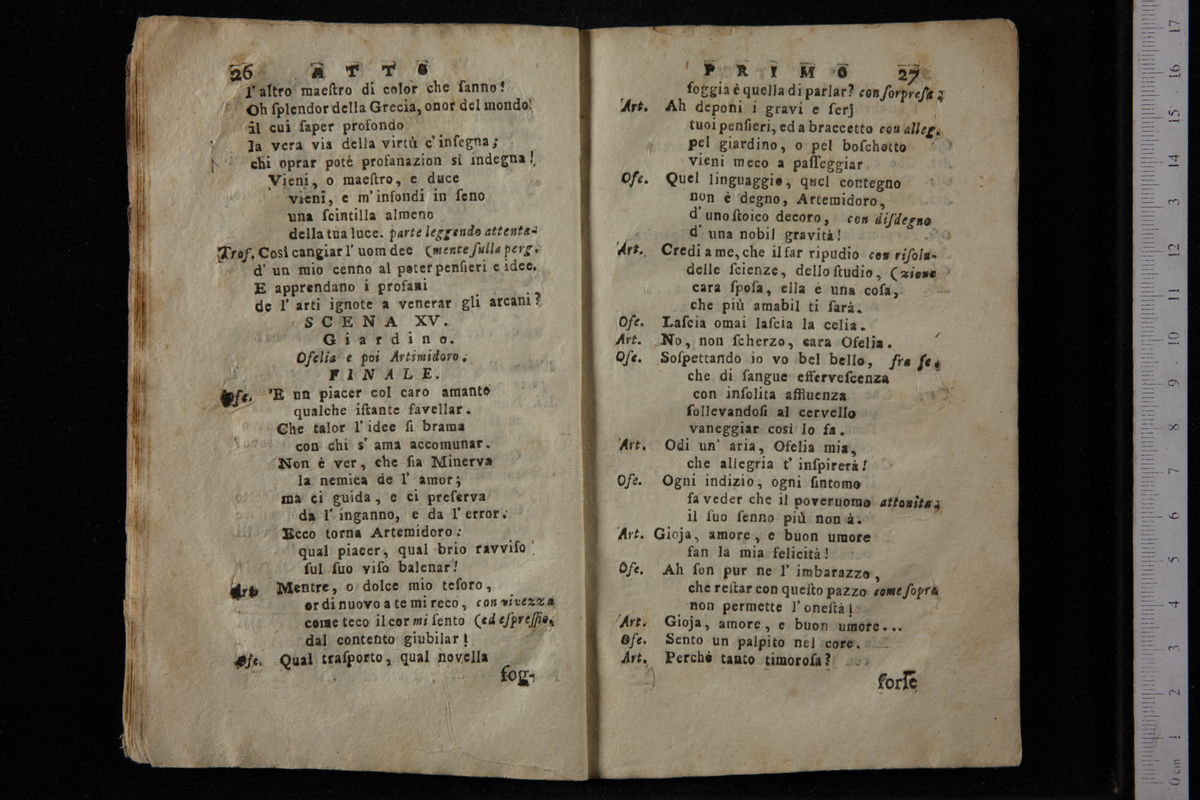 26 ATTO
l'altro maeſtro di color che ſanno!
Oh ſplendor della Grecia, onor del mondo!
il cui ſaper profondo
la vera via della virtù c'inſegna;
chi oprar potè profanazion sì indegna!
Vieni, o maeſtro, e duce
vieni, e m'infondi in ſeno
una ſcintilla almeno
della tua luce. parte leggendo attenta-
Trof. Così cangiar l'uom dee (mente ſulla perg.
d'un mio cenno al poter penſieri e idee.
E apprendano i profani
de l'arti ignote a venerar gli arcani?
SCENA XV.
Giardino.
Ofelia e poi Artimidoro.
FINALE.
Ofe. 'E un piacer col caro amante
qualche iſtante favellar.
Che talor l'idee ſi brama
con chi s'ama accomunar.
Non è ver, che ſia Minerva
la nemica de l'amor;
ma ci guida, e ci preſerva
da l'inganno, e da l'error.
Ecco torna Artemidoro:
qual piacer, qual brio ravviſo
ful ſuo viſo balenar!
Art. Mentre, o dolce mio teſoro,
or di nuovo a te mi reco, con vivezza
come teco il cor mi ſento (ed eſpreſſio.
dal contento giubilar!
Ofe. Qual traſporto, qual novella
fog-
PRIMO 27
ſoggia è quella di parlar? con ſorpreſa;
Art. Ah deponi i gravi e ſerj
tuoi penſieri, ed a braccetto con alleg.
pel giardino, o pel boſchetto
vieni meco a paſſeggiar.
Ofe. Quel linguaggio, quel contegno
non è degno, Artemidoro,
d'uno ſtoico decoro, con diſdegno
d'una nobil gravità!
Art. Credi a me, che il far ripudio con riſolu-
delle ſcienze, dello ſtudio, (zione
cara ſpoſa, ella è una coſa,
che più amabil ti farà.
Ofe. Laſcia omai laſcia la celia.
Art. No, non ſcherzo, cara Ofelia.
Ofe. Soſpettando io vo bel bello, fra ſe.
che di ſangue efferveſcenza
con inſolita affluenza
ſollevandoſi al cervello
vaneggiar così lo fa.
Art. Odi un'aria, Ofelia mia,
che allegria t'inſpirerà!
Ofe. Ogni indizio, ogni ſintomo
fa veder che il poveruomo attonita;
il ſuo ſenno più non à.
Art. Gioja, amore, e buon umore
fan la mia felicità!
Ofe. Ah ſon pur ne l'imbarazzo,
che reſtar con queſto pazzo come ſopra
non permette l'oneſtà!
Art. Gioja, amore, e buon umore...
Ofe. Sento un palpito nel core.
Art. Perchè tanto timoroſa?
forſe
0 cm 1 2 3 4 5 6 7 8 9 10 11 12 13 14 15 16 17